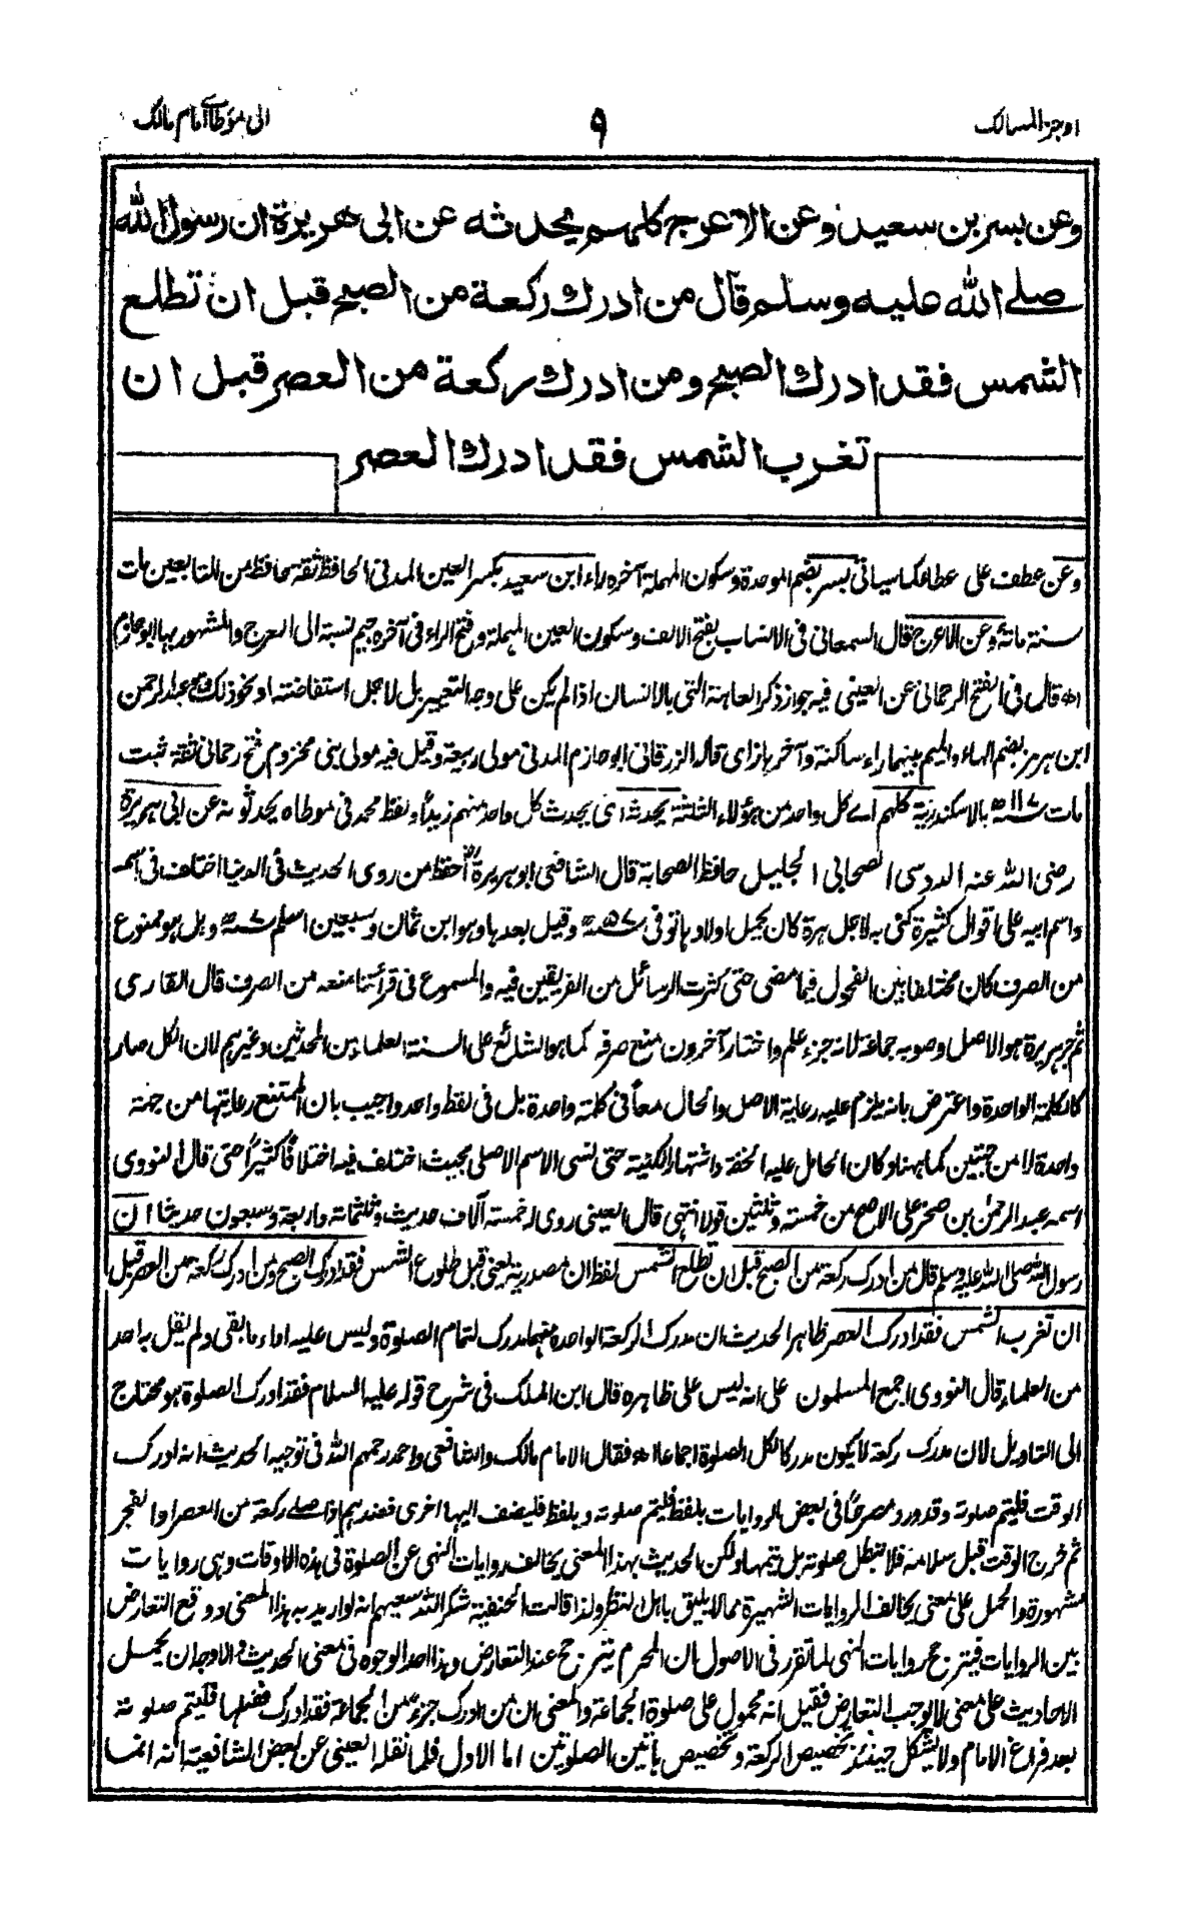 اوجز المسالك ٩ الى مؤطا امام مالك
وعن بسر بن سعيد وعن الاعرج كلهم يحدثه عن ابى هريرة ان رسول الله
صلے الله عليه وسلم قال من ادرك ركعة من الصبح قبل ان تطلع
الشمس فقد ادرك الصبح ومن ادرك ركعة من العصر قبل ان
تغرب الشمس فقد ادرك العصر
وعن عطف على عطاء كما سياتى بسر بضم الموحدة وسكون المهملة آخره راء ابن سعيد بكسر العين المدنى الحافظ ثقة حافظ من التابعين مات
سنة مائة وعن الاعرج قال السمعانى فى الانساب بفتح الالف وسكون العين المهملة وفتح الراء فى آخره جيم نسبة الى العرج والمشهور بها ابو حازم
اھ قال فى الفتح الرحمانى عن العينى فيه جواز ذكر العاهة التى بالانسان اذا لم يكن على وجه التعيير بل لاجل استفاضته او نحو ذلك عبد الرحمن
ابن هرمز بضم الهاء والميم بينهما راء ساكنة وآخر بازاى قال الزرقانى ابو حازم المدنى مولى ربيعة وقيل فيه مولى بنى مخزوم فتح رحمانى ثقة ثبت
مات سنة ١١٧ھ بالاسكندرية كلهم اے كل واحد من هؤلاء الثلثة يحدثه اى يحدث كل واحد منهم زيداً ولفظ محمد فى موطاه يحدثونه عن ابى هريرة
رضى الله عنه الدوسى الصحابى الجليل حافظ الصحابة قال الشافعى ابو هريرة احفظ من روى الحديث فى الدنيا اختلف فى اسمه
واسم ابيه على اقوال كثيرة كنى به لاجل هرة كان يحمل اولادها توفى سنة ٥٧ھ وقيل بعدها وهو ابن ثمان وسبعين اسلم سنة ٧ھ وبل هو ممنوع
من الصرف كان مختلفا بين الفحول فيما مضى حتى كثرت الرسائل من الفريقين فيه والمسموع فى قرائتنا منعه من الصرف قال القارى
ثم جر هريرة هو الاصل وصوبه جماعة لانه جزء علم واختار آخرون منع صرفه كما هو الشائع على السنة العلماء من المحدثين وغيرهم لان الكل صار
كالكلمة الواحدة واعترض بانه يلزم عليه رعاية الاصل والحال معاً فى كلمة واحدة بل فى لفظ واحد واجيب بان الممتنع رعايتهما من جهة
واحدة لا من جهتين كما ههنا وكان الحامل عليه الخفة واشتهار الكنية حتى نسى الاسم الاصلى بحيث اختلف فيه اختلافاً كثيراً حتى قال النووى
اسمه عبد الرحمٰن بن صخر على الاصح من خمسة وثلثين قولا انتهى قال العينى روى له خمسة آلاف حديث وثلثمائة واربعة وسبعون حديثا ان
رسول الله صلى الله عليه وسلم قال من ادرك ركعة من الصبح قبل ان تطلع الشمس لفظ ان مصدرية يعنى قبل طلوع الشمس فقد ادرك الصبح ومن ادرك ركعة من العصر قبل
ان تغرب الشمس فقد ادرك العصر ظاهر الحديث ان مدرك الركعة الواحدة منهما مدرك لتمام الصلوة وليس عليه اداء ما بقى ولم يقل به احد
من العلماء قال النووى اجمع المسلمون على انه ليس على ظاهره قال ابن الملك فى شرح قوله عليه السلام فقد ادرك الصلوة هو محتاج
الى التاويل لان مدرك ركعة لا يكون مدركا لكل الصلوة اجماعا اھ فقال الامام مالك والشافعى واحمد رحمهم الله فى توجيه الحديث انه ادرك
الوقت فليتم صلوته وقد ورد مصرحاً فى بعض الروايات بلفظ فليتم صلوته وبلفظ فليضف اليها اخرى فعندهم اذا صلے ركعة من العصر او الفجر
ثم خرج الوقت قبل سلامه فلا تبطل صلوته بل يتمها ولكن الحديث بهذا المعنى يخالف روايات النهى عن الصلوة فى هذه الاوقات وهى روايات
مشهورة والحمل على معنى يخالف الروايات الشهيرة مما لا يليق باهل النظر ولذا قالت الحنفية شكر الله سعيهم انه لو اريد به هذا المعنى وقع التعارض
بين الروايات فيترجح روايات النهى لما تقرر فى الاصول ان المحرم يترجح عند التعارض وهذا احد الوجوه فى معنى الحديث والاوجه ان يحمل
الاحاديث على معنى لا يوجب التعارض فقيل انه محمول على صلوة الجماعة والمعنى ان من ادرك جزءً من الجماعة فقد ادرك فضلها فليتم صلوته
بعد فراغ الامام ولا يشكل حينئذ تخصيص الركعة وتخصيص هاتين الصلوتين اما الاول فلما نقله العينى عن بعض الشافعية انه انما